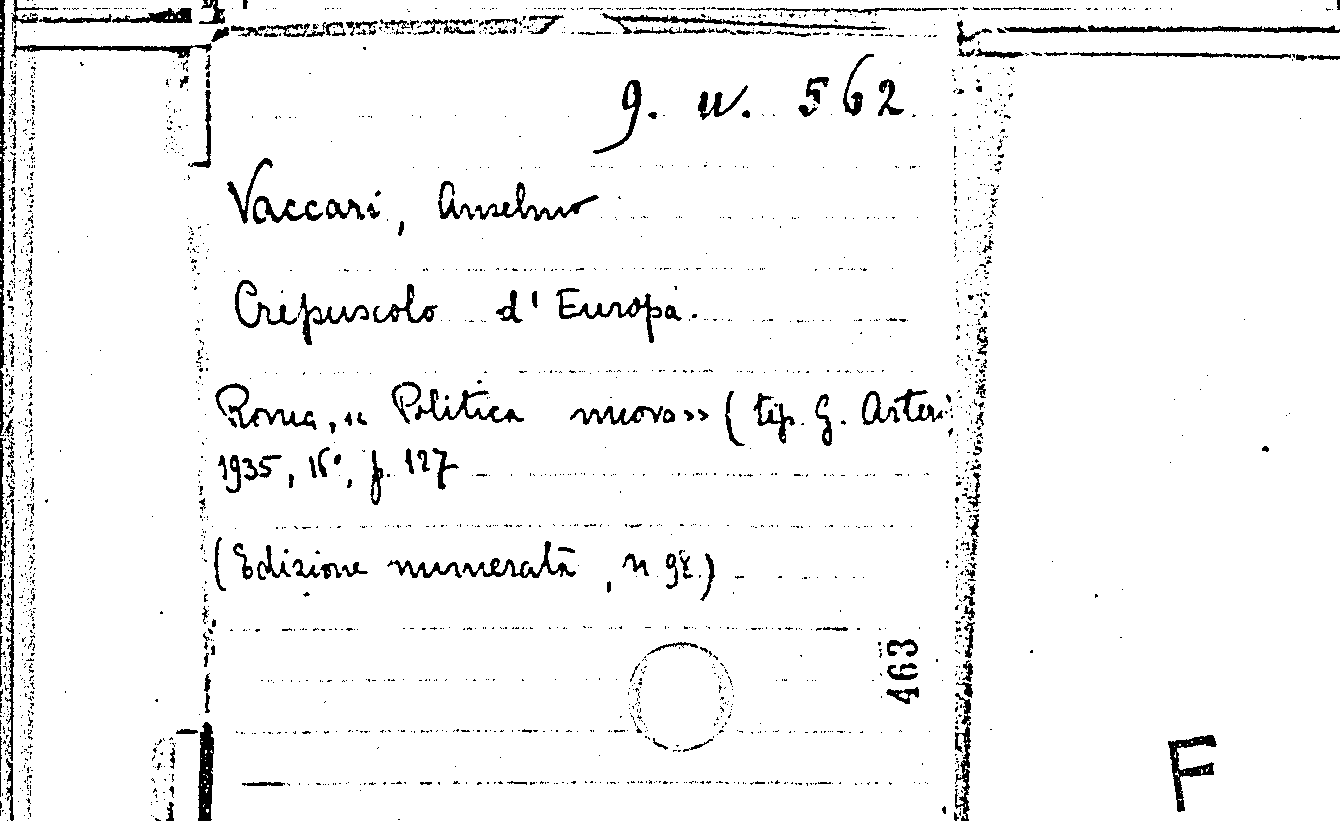 9. w. 562
Vaccari, Anselmo
Crepuscolo d'Europa.
Roma, « Politica nuova» ( tip. G. Arteri,
1935, 16°, p. 127
(Edizione numerata, n
463
F